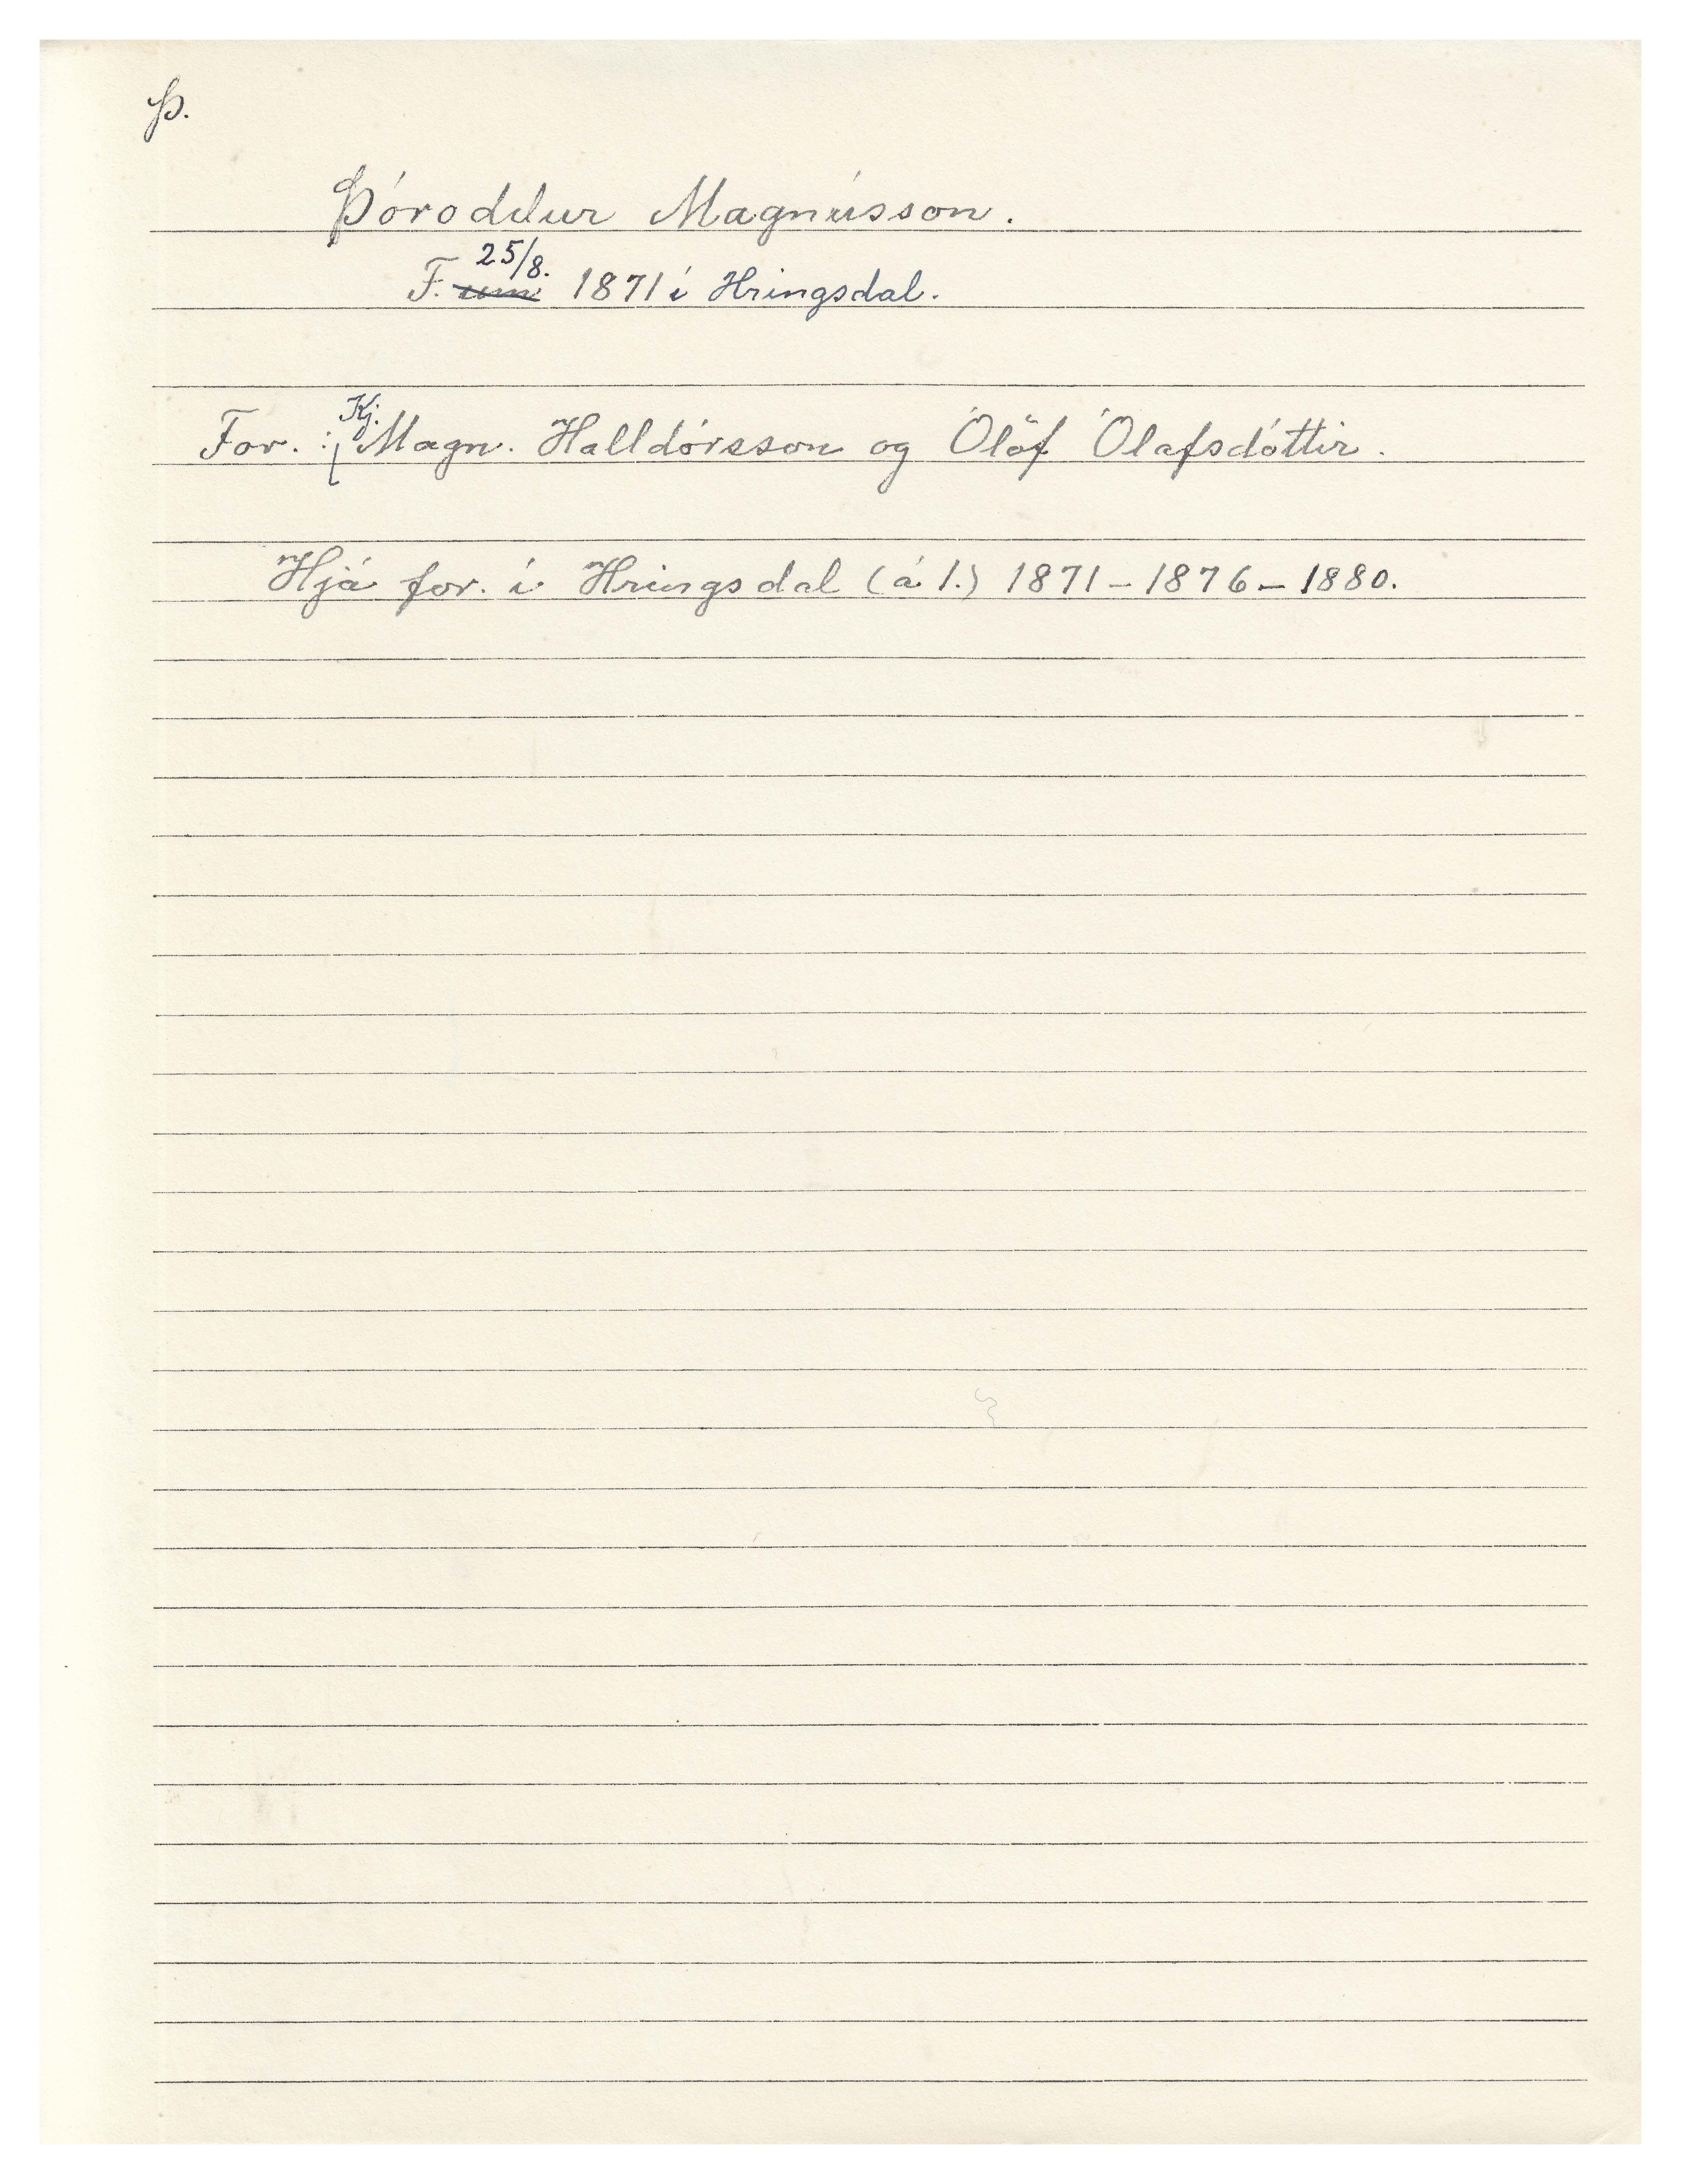 Þ.
Þóroddur Magnússon.
25/8.
F. um 1871 í Hringsdal.
Kj.
For. : Magn. Halldórsson og Ólöf Ólafsdóttir.
Hjá for. í Hringsdal (á 1.) 1871 – 1876 – 1880.